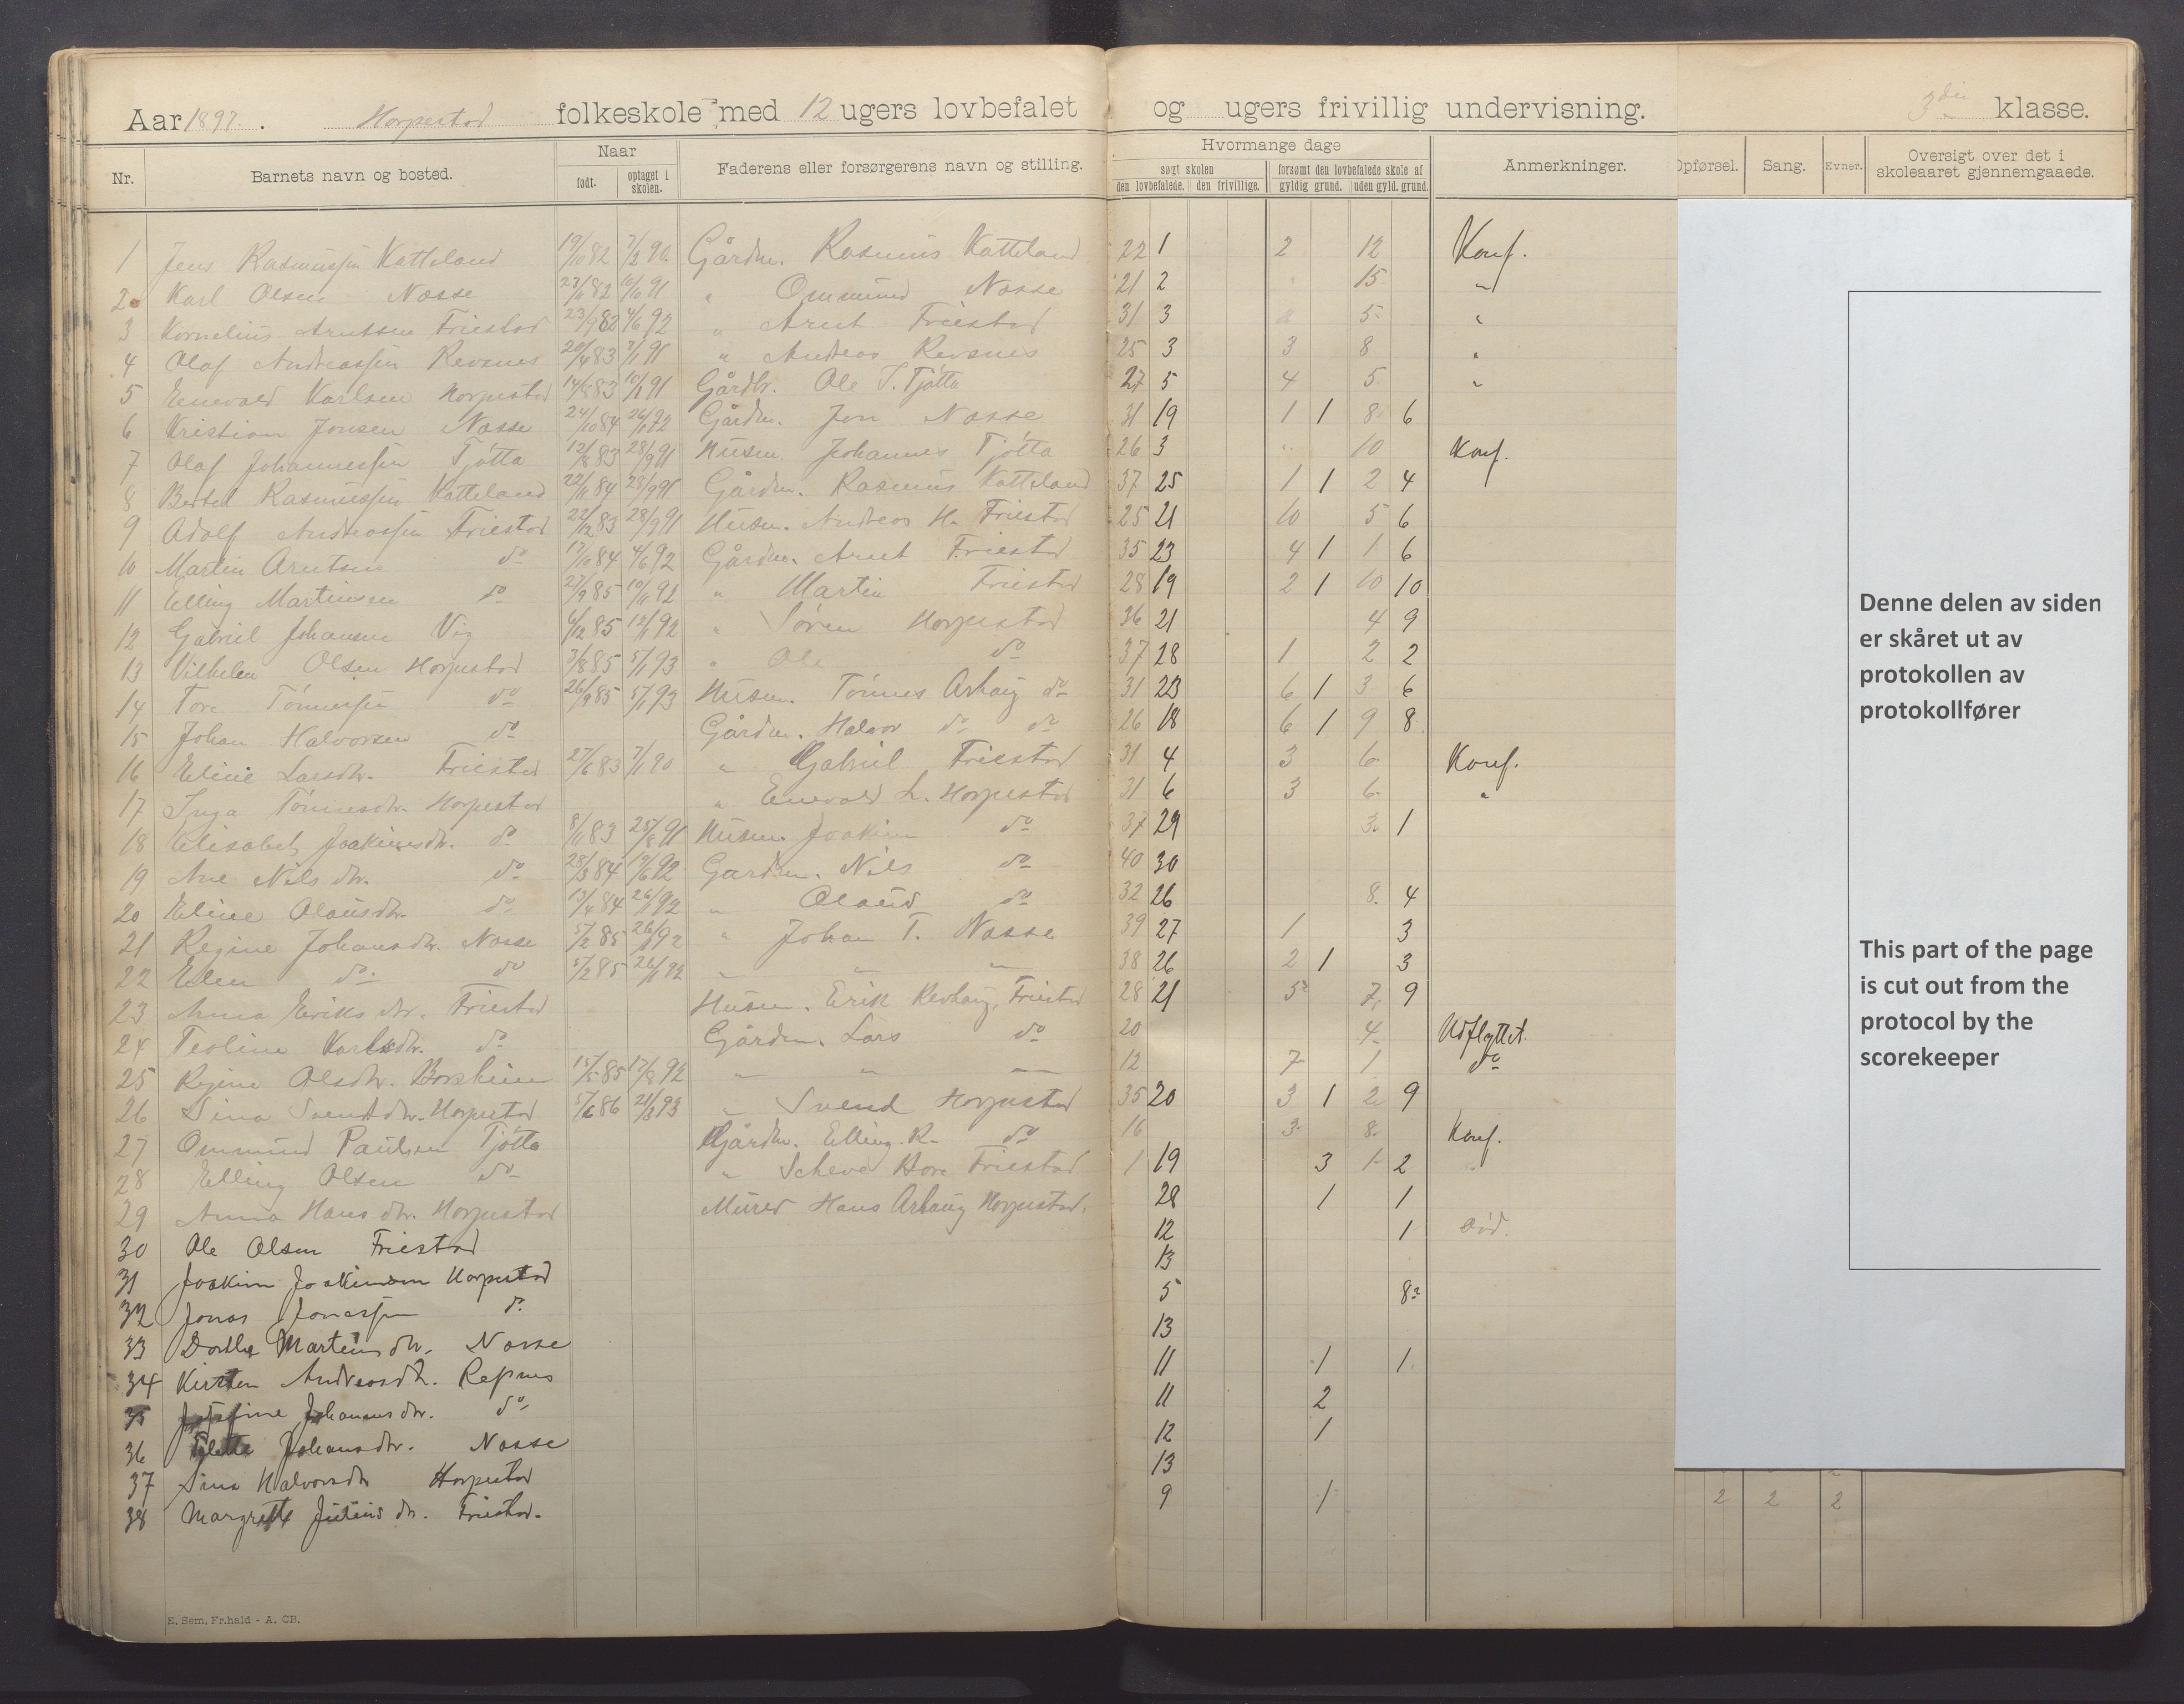 Aar 1897. Horpestad folkeskole med 12 ugers lovbefalet og ugers frivillig undervisning. 3die klasse.
Nr. Barnets navn og bosted. Naar født. optaget i skolen. Faderens eller forsørgerens navn og stilling. Hvormange dage søgt skolen den lovbefalede. den frivillige. forsømt den lovbefalede skole af gyldig grund. uden gyld. grund. Anmerkninger. Opførsel. Sang. Evner. Oversigt over det i skoleaaret gjennemgaaede.
1 Jens Rasmussen Katteland 19/10 82 7/2 90 Gårdm. Rasmus Katteland 22 1 2 12 Konf.
2 Karl Olsen Næsse 23/11 82 10/10 91 " Ommund Næsse 21 2 15 "
3 Kornelius Arntsen Friestad 23/9 82 4/6 92 " Arnt Friestad 31 3 5 "
4 Olaf Andreassen Revsnes 20/4 83 7/1 91 " Andreas Revsnes 25 3 3 8 "
5 Enevald Karlsen Horpestad 14/5 83 10/1 91 Gårdbr. Ole T. Tjøtta 27 5 4 5 "
6 Kristian Jonsen Næsse 24/10 84 26/1 92 Gårdm. Jon Næsse 31 19 1 1 8 6
7 Olaf Johannessen Tjøtta 12/8 83 28/9 91 Husm. Johannes Tjøtta 26 3 " 10 Konf.
8 Bertel Rasmussen Katteland 22/11 84 28/9 91 Gårdm. Rasmus Katteland 37 25 1 1 2 4
9 Adolf Andreassen Friestad 22/12 83 28/9 91 Husm. Andreas H. Friestad 25 21 10 5 6
10 Martin Arntsen do 17/10 84 4/6 92 Gårdm. Arnt Friestad 35 23 4 1 1 6
11 Elling Martinsen do 27/9 85 10/11 92 " Martin Friestad 28 19 2 1 10 10
12 Gabriel Johansen Vig 6/12 85 12/1 92 " Søren Horpestad 36 21 4 9
13 Vilhelm Olsen Horpestad 3/8 85 5/1 93 " Ole do 37 28 1 2 2
14 Tore Tønnessen do 26/9 85 5/1 93 Husm. Tønnes Arhaug do 31 23 6 1 3 6
15 Johan Halvorsen do Gårdm. Halvor do do 26 18 6 1 9 8
16 Eline Larsdtr. Friestad 27/6 83 7/1 90 " Gabriel Friestad 31 4 3 6 Konf.
17 Inga Tønnesdtr. Horpestad " Enevald L. Horpestad 31 6 3 6 "
18 Elisabet Joakimsdtr. do 8/11 83 25/8 91 Husm. Joakim do 37 29 3 1
19 Ane Nilsdtr. do 28/3 84 19/6 92 Gardm. Nils do 40 30
20 Eline Olausdtr. do 13/4 84 26/1 92 " Olaus do 32 26 8 4
21 Regine Johansdtr. Næsse 5/2 85 26/1 92 " Johan T. Næsse 39 27 1 3
22 Elen do do 5/2 85 26/1 92 " " " 38 26 2 1 3
23 Anna Eriksdtr. Friestad Husm. Erik Revhaug, Friestad 28 21 5 7 9
24 Teoline Karlsdtr. do Gårdm. Lars do 20 4 Udflyttet.
25 Regine Olsdtr. Borsheim 15/5 85 17/8 92 " " " 12 7 1 do
26 Sina Svendsdtr. Horpestad 5/6 86 21/3 93 " Svend Horpestad 35 20 3 1 2 9
27 Ommund Paulsen Tjøtta Gårdm. Elling R. do 16 3 8 Konf.
28 Elling Olsen do " Scheve Hore Friestad 1 19 3 1 2
29 Anna Hansdtr. Horpestad Murer Hans Arhaug Horpestad. 28 1 1
30 Ole Olsen Friestad 12 1 Død.
31 Joakim Joakimsen Horpestad 13
32 Jonas Jonassen do 5 8
33 Dorthe Martinsdtr. Næsse 13
34 Kirsten Andreasdtr. Refsnes 11 1 1
35 Josefine Johannesdtr. do 11 2
36 Johansdtr. Næsse 12 1
37 Sina Halvorsdtr Horpestad 13
38 Margrette Juliusdtr. Friestad. 9 1 2 2 2
E. Sem, Fr.hald - A. CB.
Denne delen av siden
er skåret ut av
protokollen av
protokollfører
This part of the page
is cut out from the
protocol by the
scorekeeper